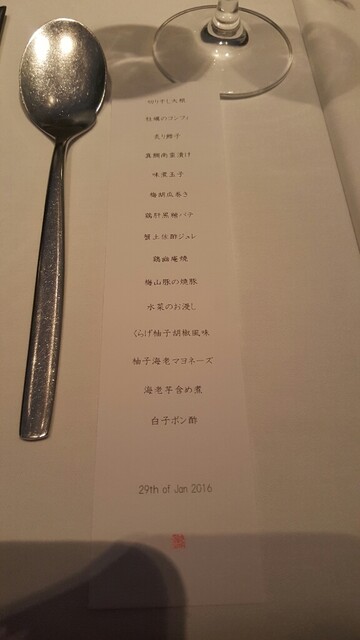 切り干し大根
牡蠣のコンフィ
炙り鱈子
真鯛南蛮漬け
味煮玉子
梅胡瓜巻き
鶏肝黒糖バテ
蟹土佐酢ジュレ
鶏幽庵焼
梅山豚の焼豚
水菜のお浸し
くらげ柚子胡椒風味
柚子海老マヨネーズ
海老芋含め煮
白子ポン酢
29th of Jan 2016